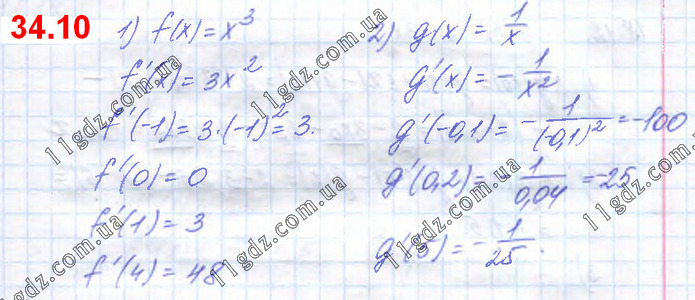 34.10
1) f(x) = x³
f'(x) = 3x²
f'(-1) = 3·(-1)² = 3.
f'(0) = 0
f'(1) = 3
f'(4) = 48
2) g(x) = 1/x
g'(x) = - 1/x²
g'(-0,1) = - 1/(-0,1)² = -100
g'(0,2) = - 1/0,04 = -25
g'(5) = - 1/25.
11gdz.com.ua
11gdz.com.ua
11gdz.com.ua
11gdz.com.ua
11gdz.com.ua
11gdz.com.ua